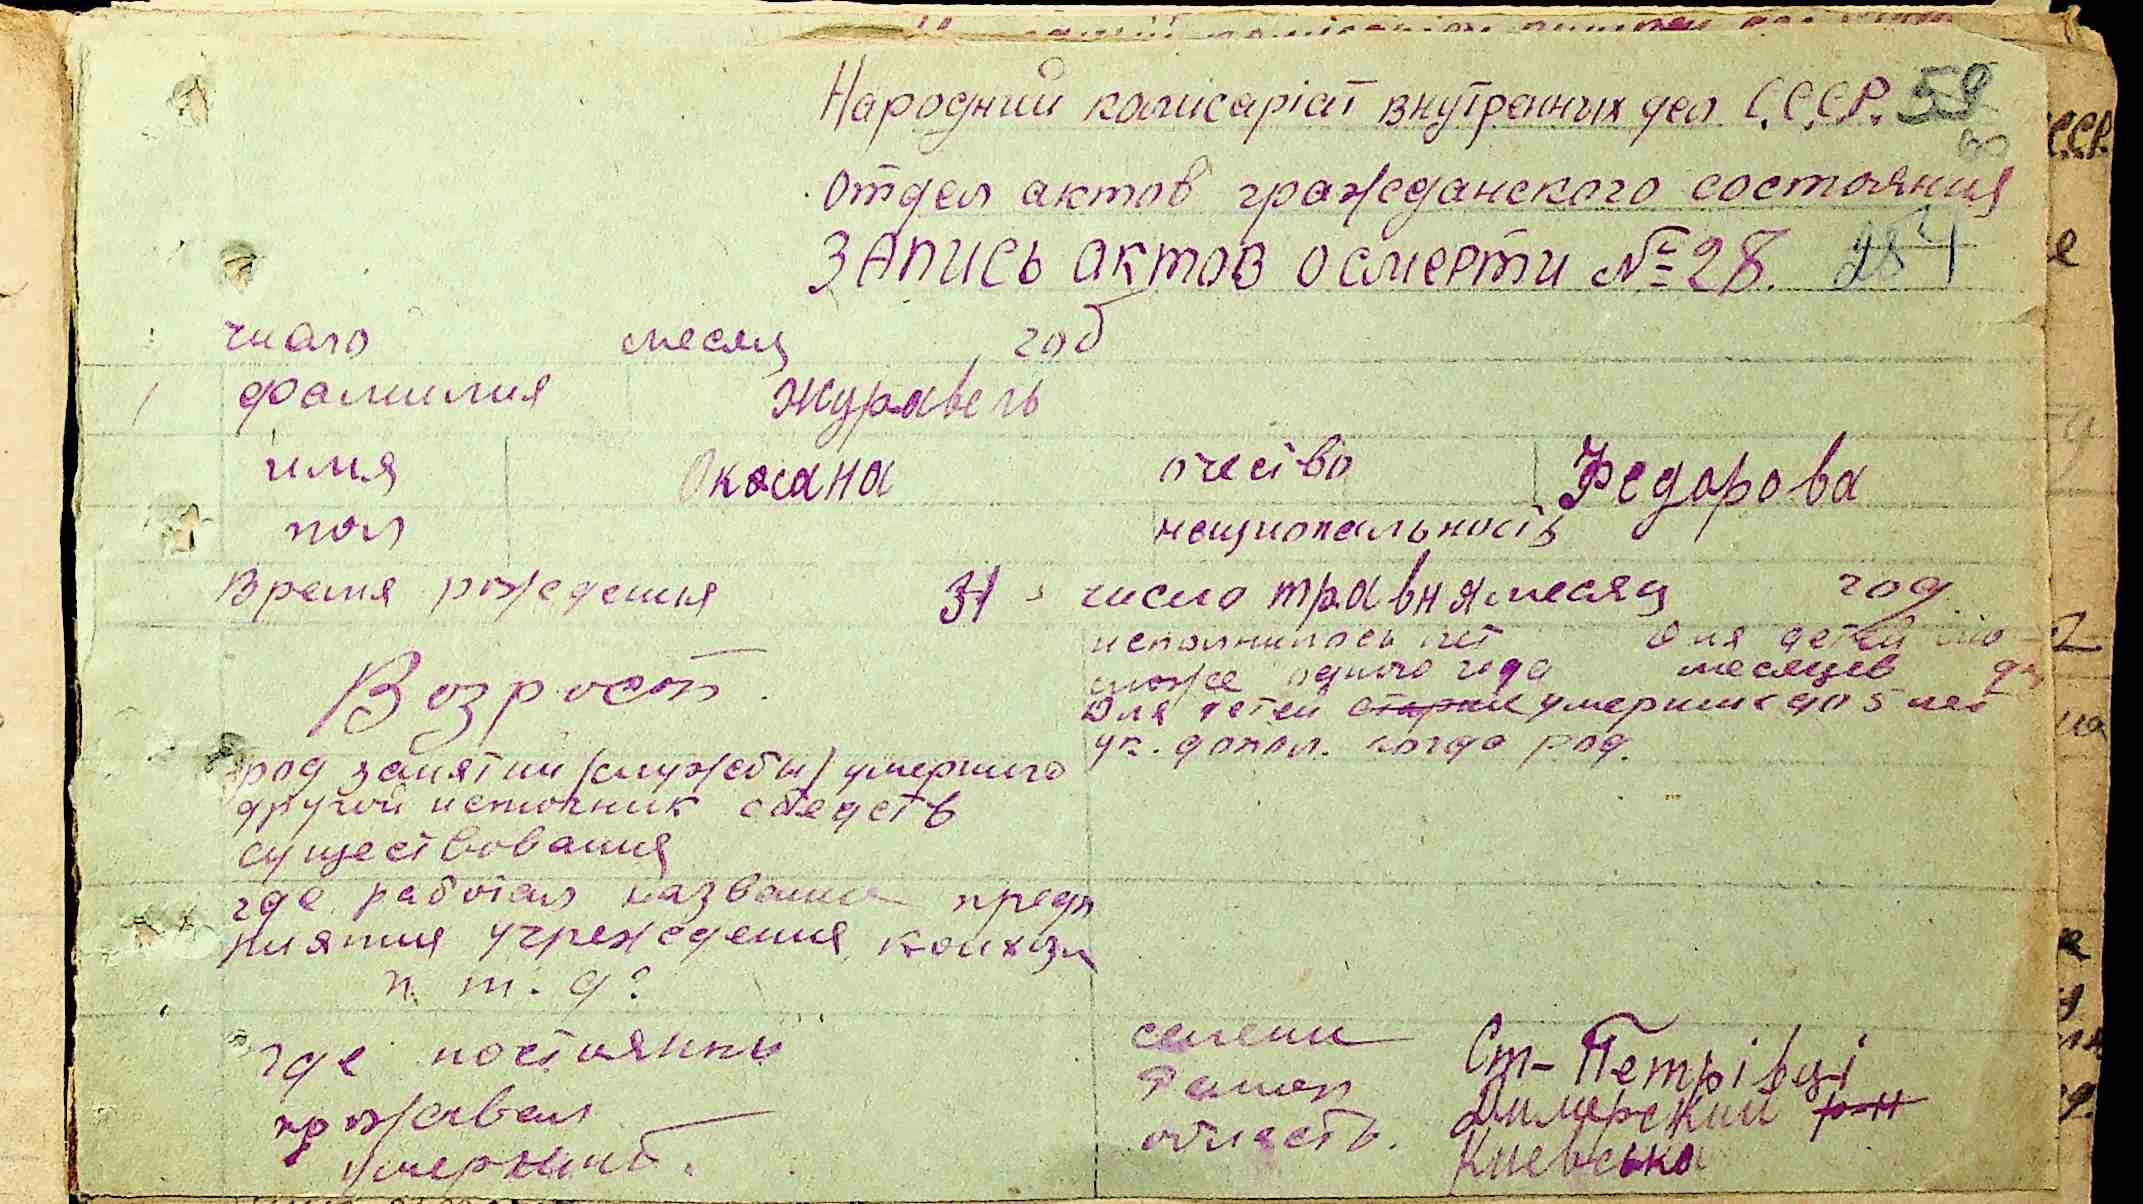 Народний комисаріат внутренных дел С.С.С.Р. 59
отдел актов гражданского состояния
ЗАПИСЬ актов о смерти №28. 284
число месяц год
фамилия Журавель
имя Оксана очество Федорова
пол национальность
Время рождения 31 число травня месяц год
исполнилось лет Для детей мо-
ложе одного года месяцев
Возрост Для детей старше умерших до 5 лет
ук. допол. когда род.
род занятии /службы/ умершего
другой источник средств
существования
где работал название предп
риятия учреждения, колхозы
и т. д?
где постоянны селени Ст-Петрівці
проживал район Димерский р-н
умерший. область. Киевська